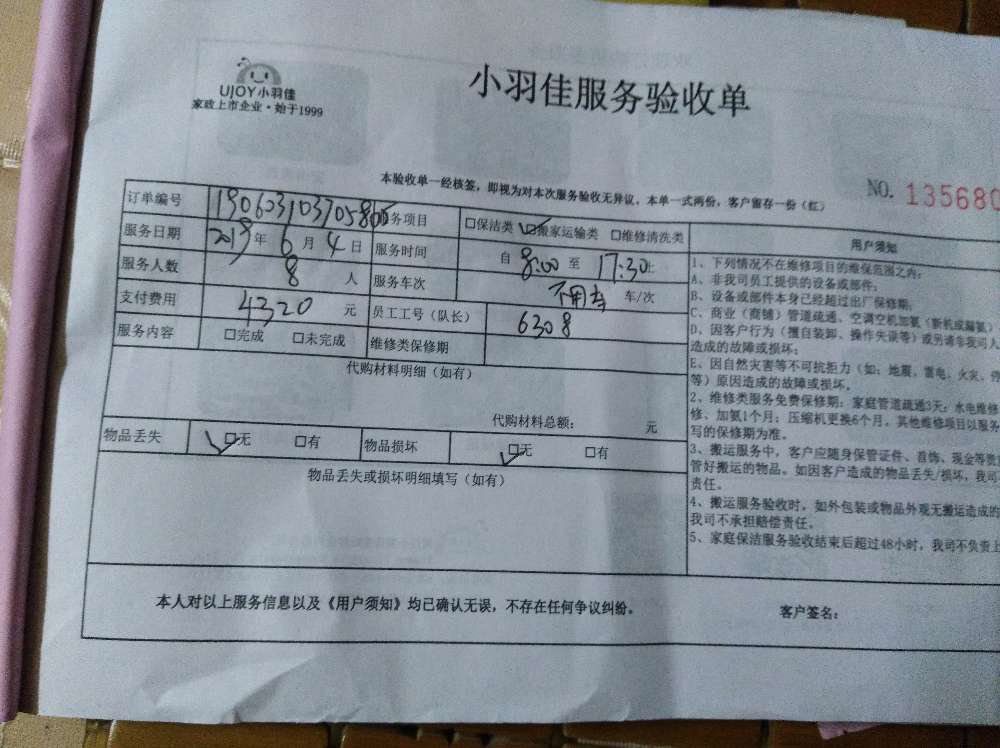 UJOY小羽佳
家政上市企业·始于1999
小羽佳服务验收单
本验收单一经核签，即视为对本次服务验收无异议，本单一式两份，客户留存一份（红）
NO. 135680
订单编号
务项目 □保洁类 □搬家运输类 □维修清洗类
服务日期 2019年6月4日 服务时间 自 8:00 至 17:30止
服务人数 8 人 服务车次 不用车 车/次
支付费用 4320 元 员工工号（队长） 6308
服务内容 □完成 □未完成 维修类保修期
代购材料明细（如有）
代购材料总额： 元
物品丢失 □无 □有 物品损坏 □无 □有
物品丢失或损坏明细填写（如有）
用户须知
1、下列情况不在维修项目的维保范围之内：
A、非我司员工提供的设备或部件；
B、设备或部件本身已经超过出厂保修期；
C、商业（商铺）管道疏通、空调空机加氨（新机或漏氨）
D、因客户行为（擅自装卸、操作失误等）或另请非我司人
造成的故障或损坏；
E、因自然灾害等不可抗拒力（如：地震、雷电、火灾、
等）原因造成的故障或损坏。
2、维修类服务免费保修期：家庭管道疏通3天；水电维修
修、加氨1个月；压缩机更换6个月，其他维修项目以服务
写的保修期为准。
3、搬运服务中，客户应随身保管证件、首饰、现金等贵
管好搬运的物品。如因客户造成的物品丢失/损坏，我司
责任。
4、搬运服务验收时，如外包装或物品外观无搬运造成的
我司不承担赔偿责任。
5、家庭保洁服务验收结束后超过48小时，我司不负责上
本人对以上服务信息以及《用户须知》均已确认无误，不存在任何争议纠纷。 客户签名：